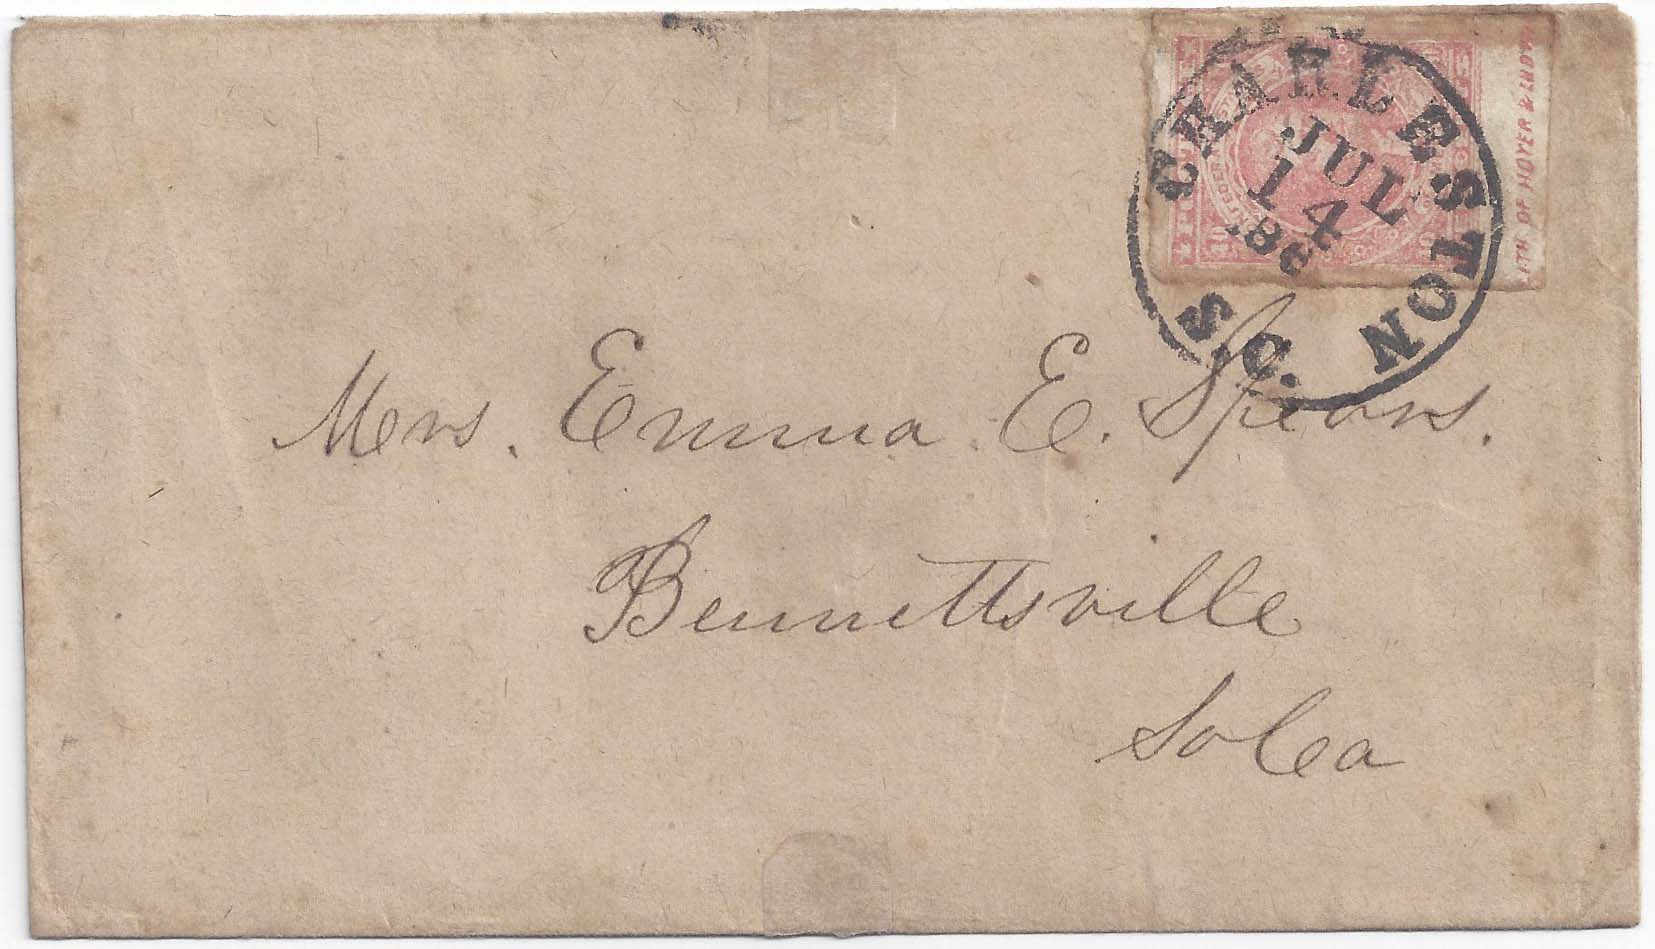 CHARLESTON
S.C.
JUL
14
186
LITH OF HOYER & LUDWIG
Mrs. Emma E. Spears.
Bennettsville
So Ca